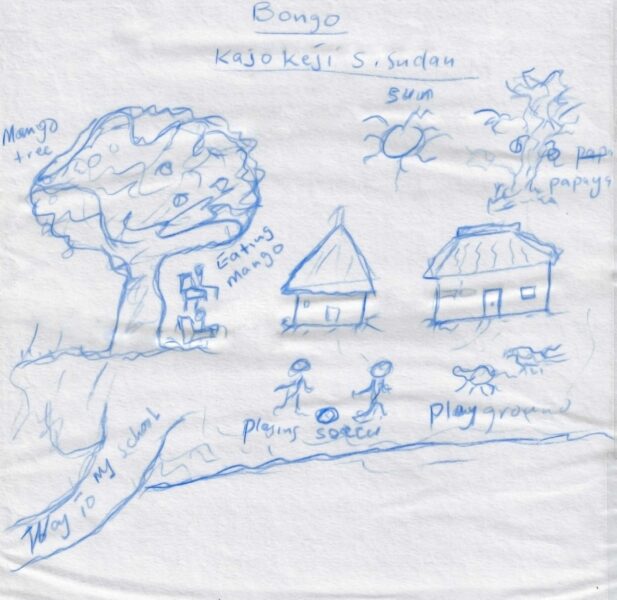 Bongo
Kajo Keji S. Sudan
sun
Mango
tree
papa
papaya
Eating
mango
playing soccer
playground
Way to my school